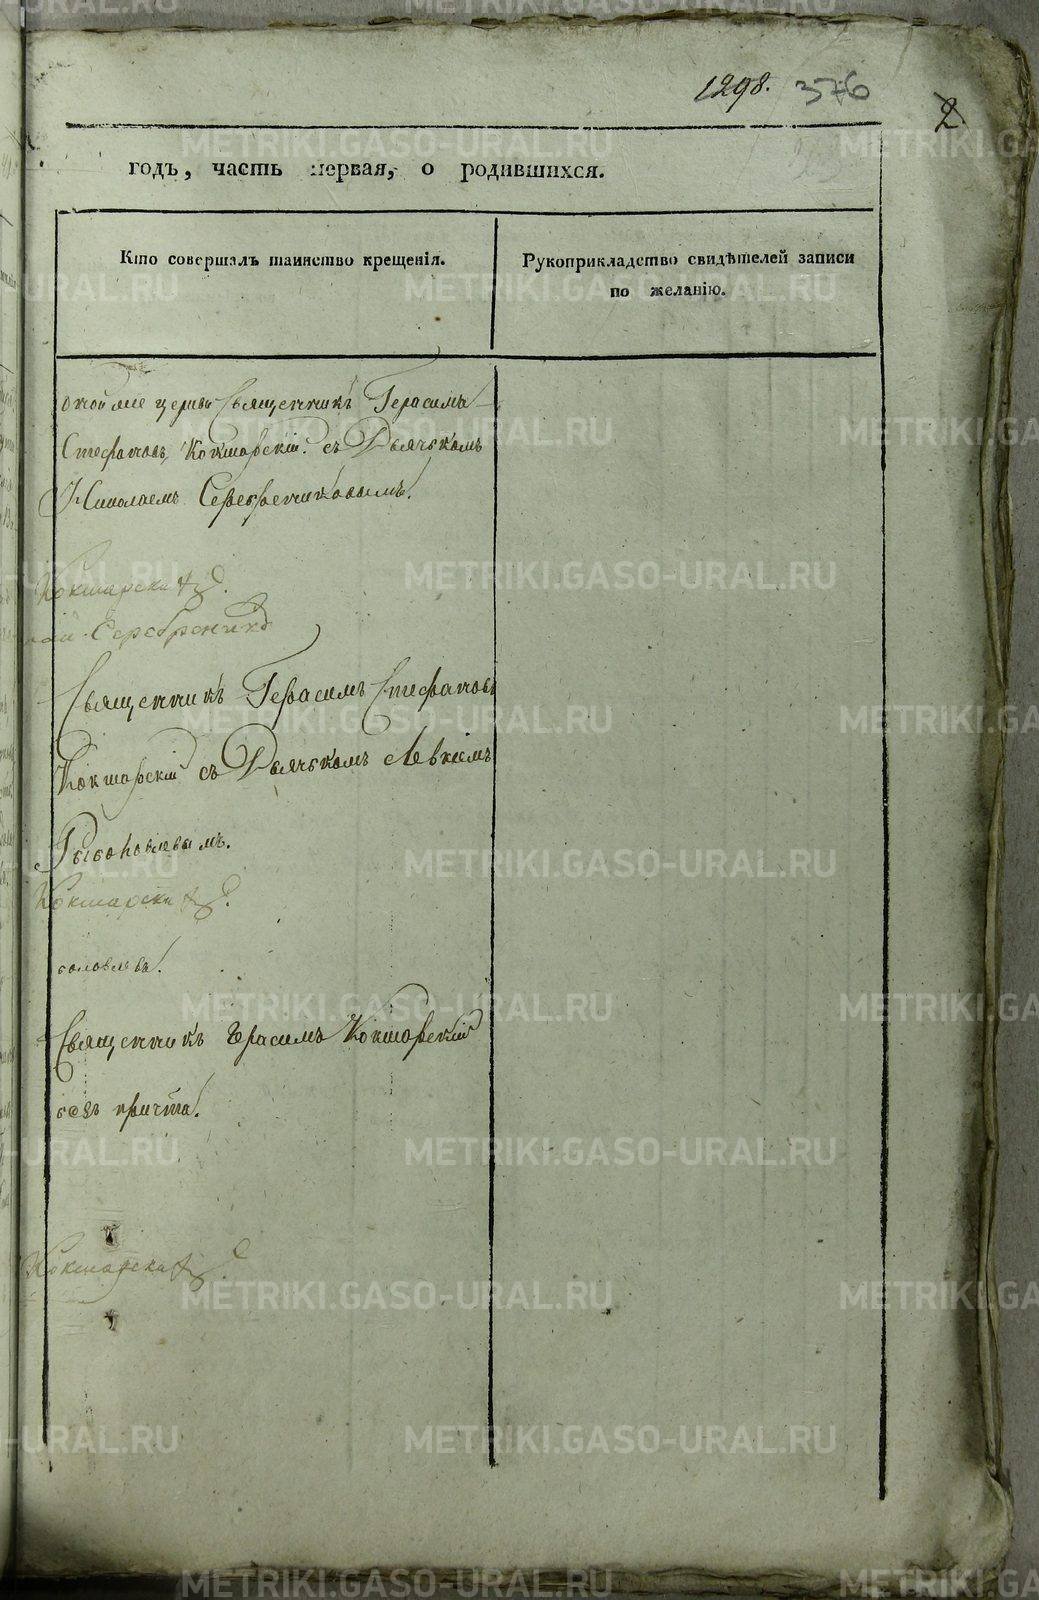 1298. 376
2
годъ, часть первая, о родившихся.
Кто совершалъ таинство крещенія.
Рукоприкладство свидѣтелей записи
по желанію.
оной же церкви Священникъ Герасимъ
Стефановъ Кокшарскій съ Дьячькомъ
Николаемъ Серебренниковымъ.
Кокшарски
Серебренико
Священникъ Герасимъ Стефановъ
Кокшарскій съ Дьячькомъ Левкіемъ
Кокшарски
Священникъ Герасимъ Кокшарскій
безъ причта.
Кокшарски
METRIKI.GASO-URAL.RU